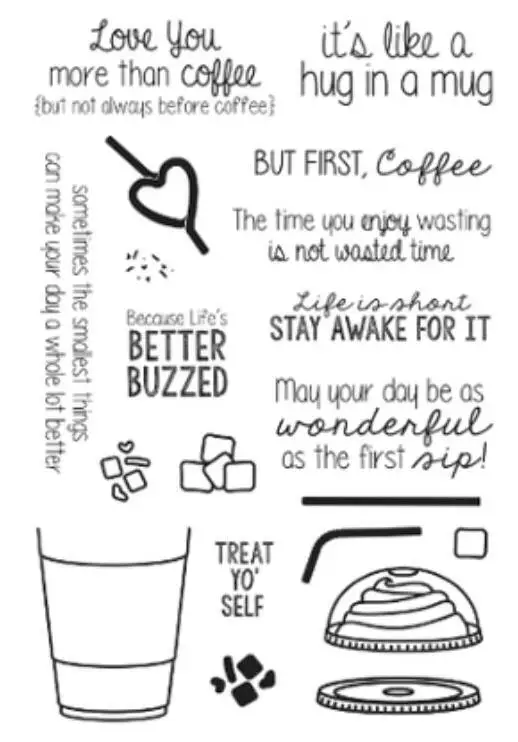 Love You
more than coffee
{but not always before coffee}
it's like a
hug in a mug
BUT FIRST, Coffee
The time you enjoy wasting
is not wasted time
sometimes the smallest things
can make your day a whole lot better
Because Life's
BETTER
BUZZED
Life is short
STAY AWAKE FOR IT
May your day be as
wonderful
as the first sip!
TREAT
YO'
SELF